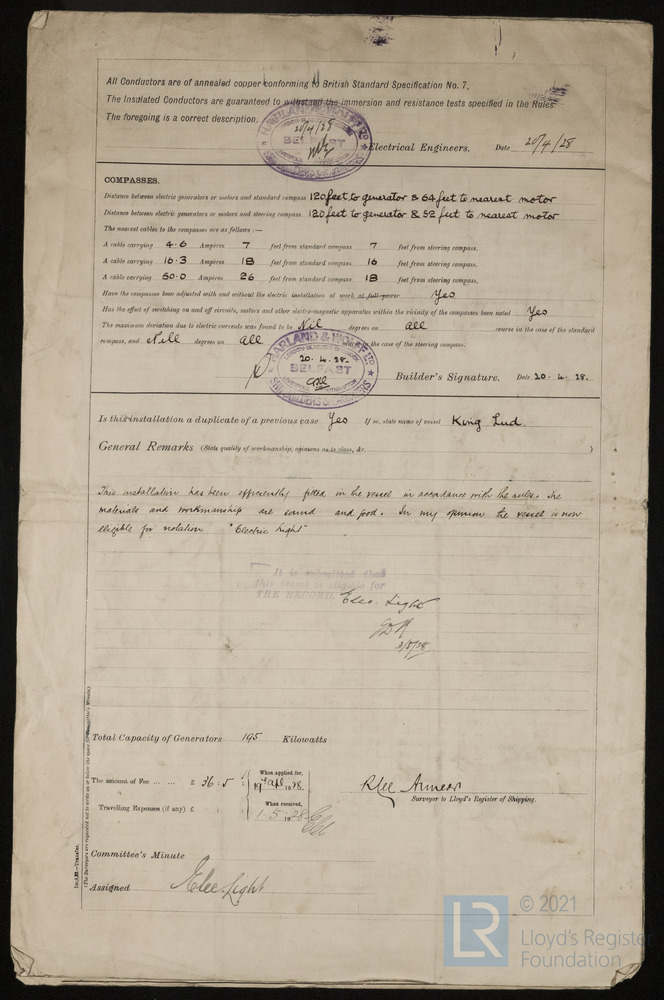 All Conductors are of annealed copper conforming to British Standard Specification No. 7.
The Insulated Conductors are guaranteed to withstand the immersion and resistance tests specified in the Rules.
The foregoing is a correct description.
HARLAND & WOLFF LTD
20/4/28
BELFAST
SHIPBUILDERS & ENGINEERS
Electrical Engineers. Date 20/4/28
COMPASSES.
Distance between electric generators or motors and standard compass 120 feet to generator & 64 feet to nearest motor
Distance between electric generators or motors and steering compass 120 feet to generator & 52 feet to nearest motor
The nearest cables to the compasses are as follows :—
A cable carrying 4.6 Amperes 7 feet from standard compass 7 feet from steering compass.
A cable carrying 16.3 Amperes 18 feet from standard compass 16 feet from steering compass.
A cable carrying 50.0 Amperes 26 feet from standard compass 18 feet from steering compass.
Have the compasses been adjusted with and without the electric installation at work at full power Yes
Has the effect of switching on and off circuits, motors and other electro-magnetic apparatus within the vicinity of the compasses been noted Yes
The maximum deviation due to electric currents was found to be Nil degrees on all course in the case of the standard
compass, and Nill degrees on all course in the case of the steering compass.
HARLAND & WOLFF LTD
LONDON GLASGOW
20.4.28.
BELFAST
LIVERPOOL SOUTHAMPTON
SHIPBUILDERS & ENGINEERS
Builder's Signature. Date 20.4.28.
Is this installation a duplicate of a previous case Yes If so, state name of vessel King Lud.
General Remarks (State quality of workmanship, opinions as to class, &c. )
This installation has been efficiently fitted in the vessel in accordance with the rules. The
materials and workmanship are sound and good. In my opinion the vessel is now
eligible for notation "Electric Light"
It is submitted that
this vessel is eligible for
THE RECORD. Elec. Light
Total Capacity of Generators 195 Kilowatts
The amount of Fee ... ... £ 36 : 5 : When applied for, 19th Apl 1928
Travelling Expenses (if any) £ : : When received, 1.5.1928
Surveyor to Lloyd's Register of Shipping.
Committee's Minute
Assigned Elec Light
Im.—Transfer.
(The Surveyors are requested not to write on or below the space for Committee's Minute.)
LR
© 2021
Lloyd's Register
Foundation